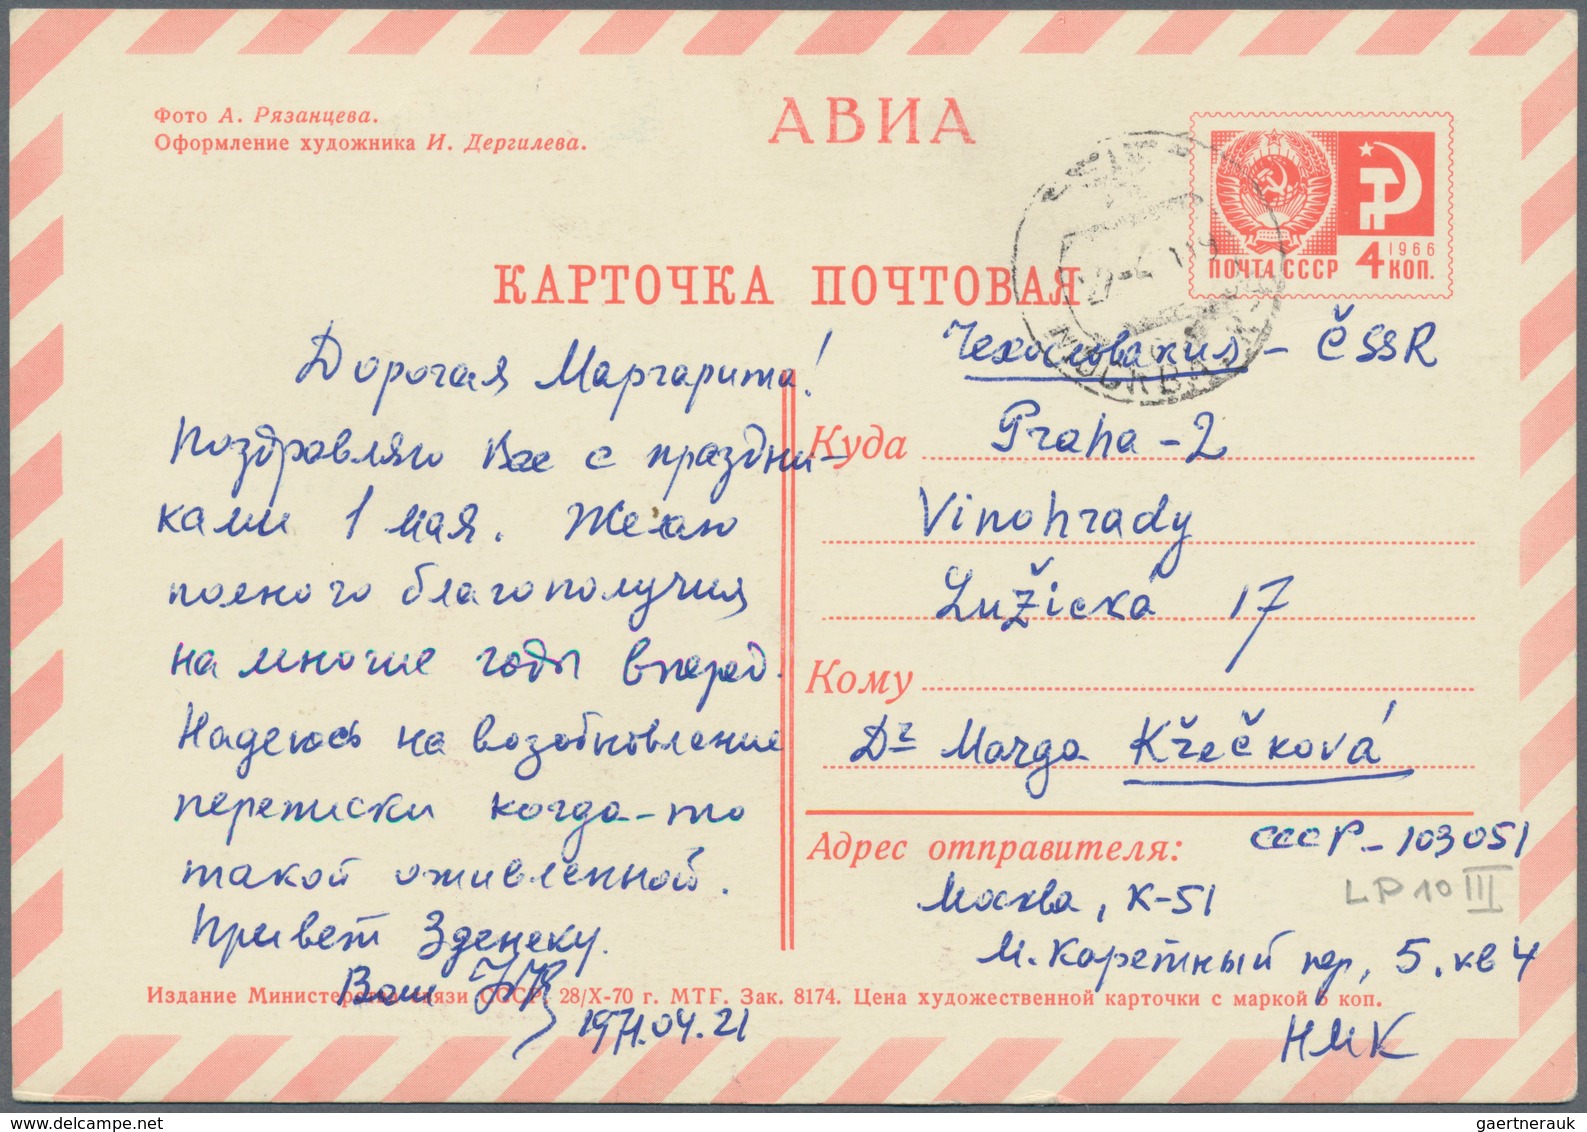 Фото А. Рязанцева.
Оформление художника И. Дергилева.
АВИА
1966
ПОЧТА СССР 4 КОП.
КАРТОЧКА ПОЧТОВАЯ
МОСКВА
Дорогая Маргарита!
Поздравляю Вас с праздни-
ками 1 мая. Желаю
полного благополучия
на многие годы вперед.
Надеюсь на возобновление
переписки когда-то
такой оживленной.
Привет Зденеку.
Ваш
1971.04.21
Чехословакия - ČSSR
Куда Praha-2
Vinohrady
Lužická 17
Кому
Dr Marga Křečková
Адрес отправителя: СССР-103051
Москва, К-51
LP 10 III
М. Каретный пер, 5, кв 4
Издание Министерства связи СССР. 28/X-70 г. МТГ. Зак. 8174. Цена художественной карточки с маркой 5 коп.
НМК
gaertnerauk